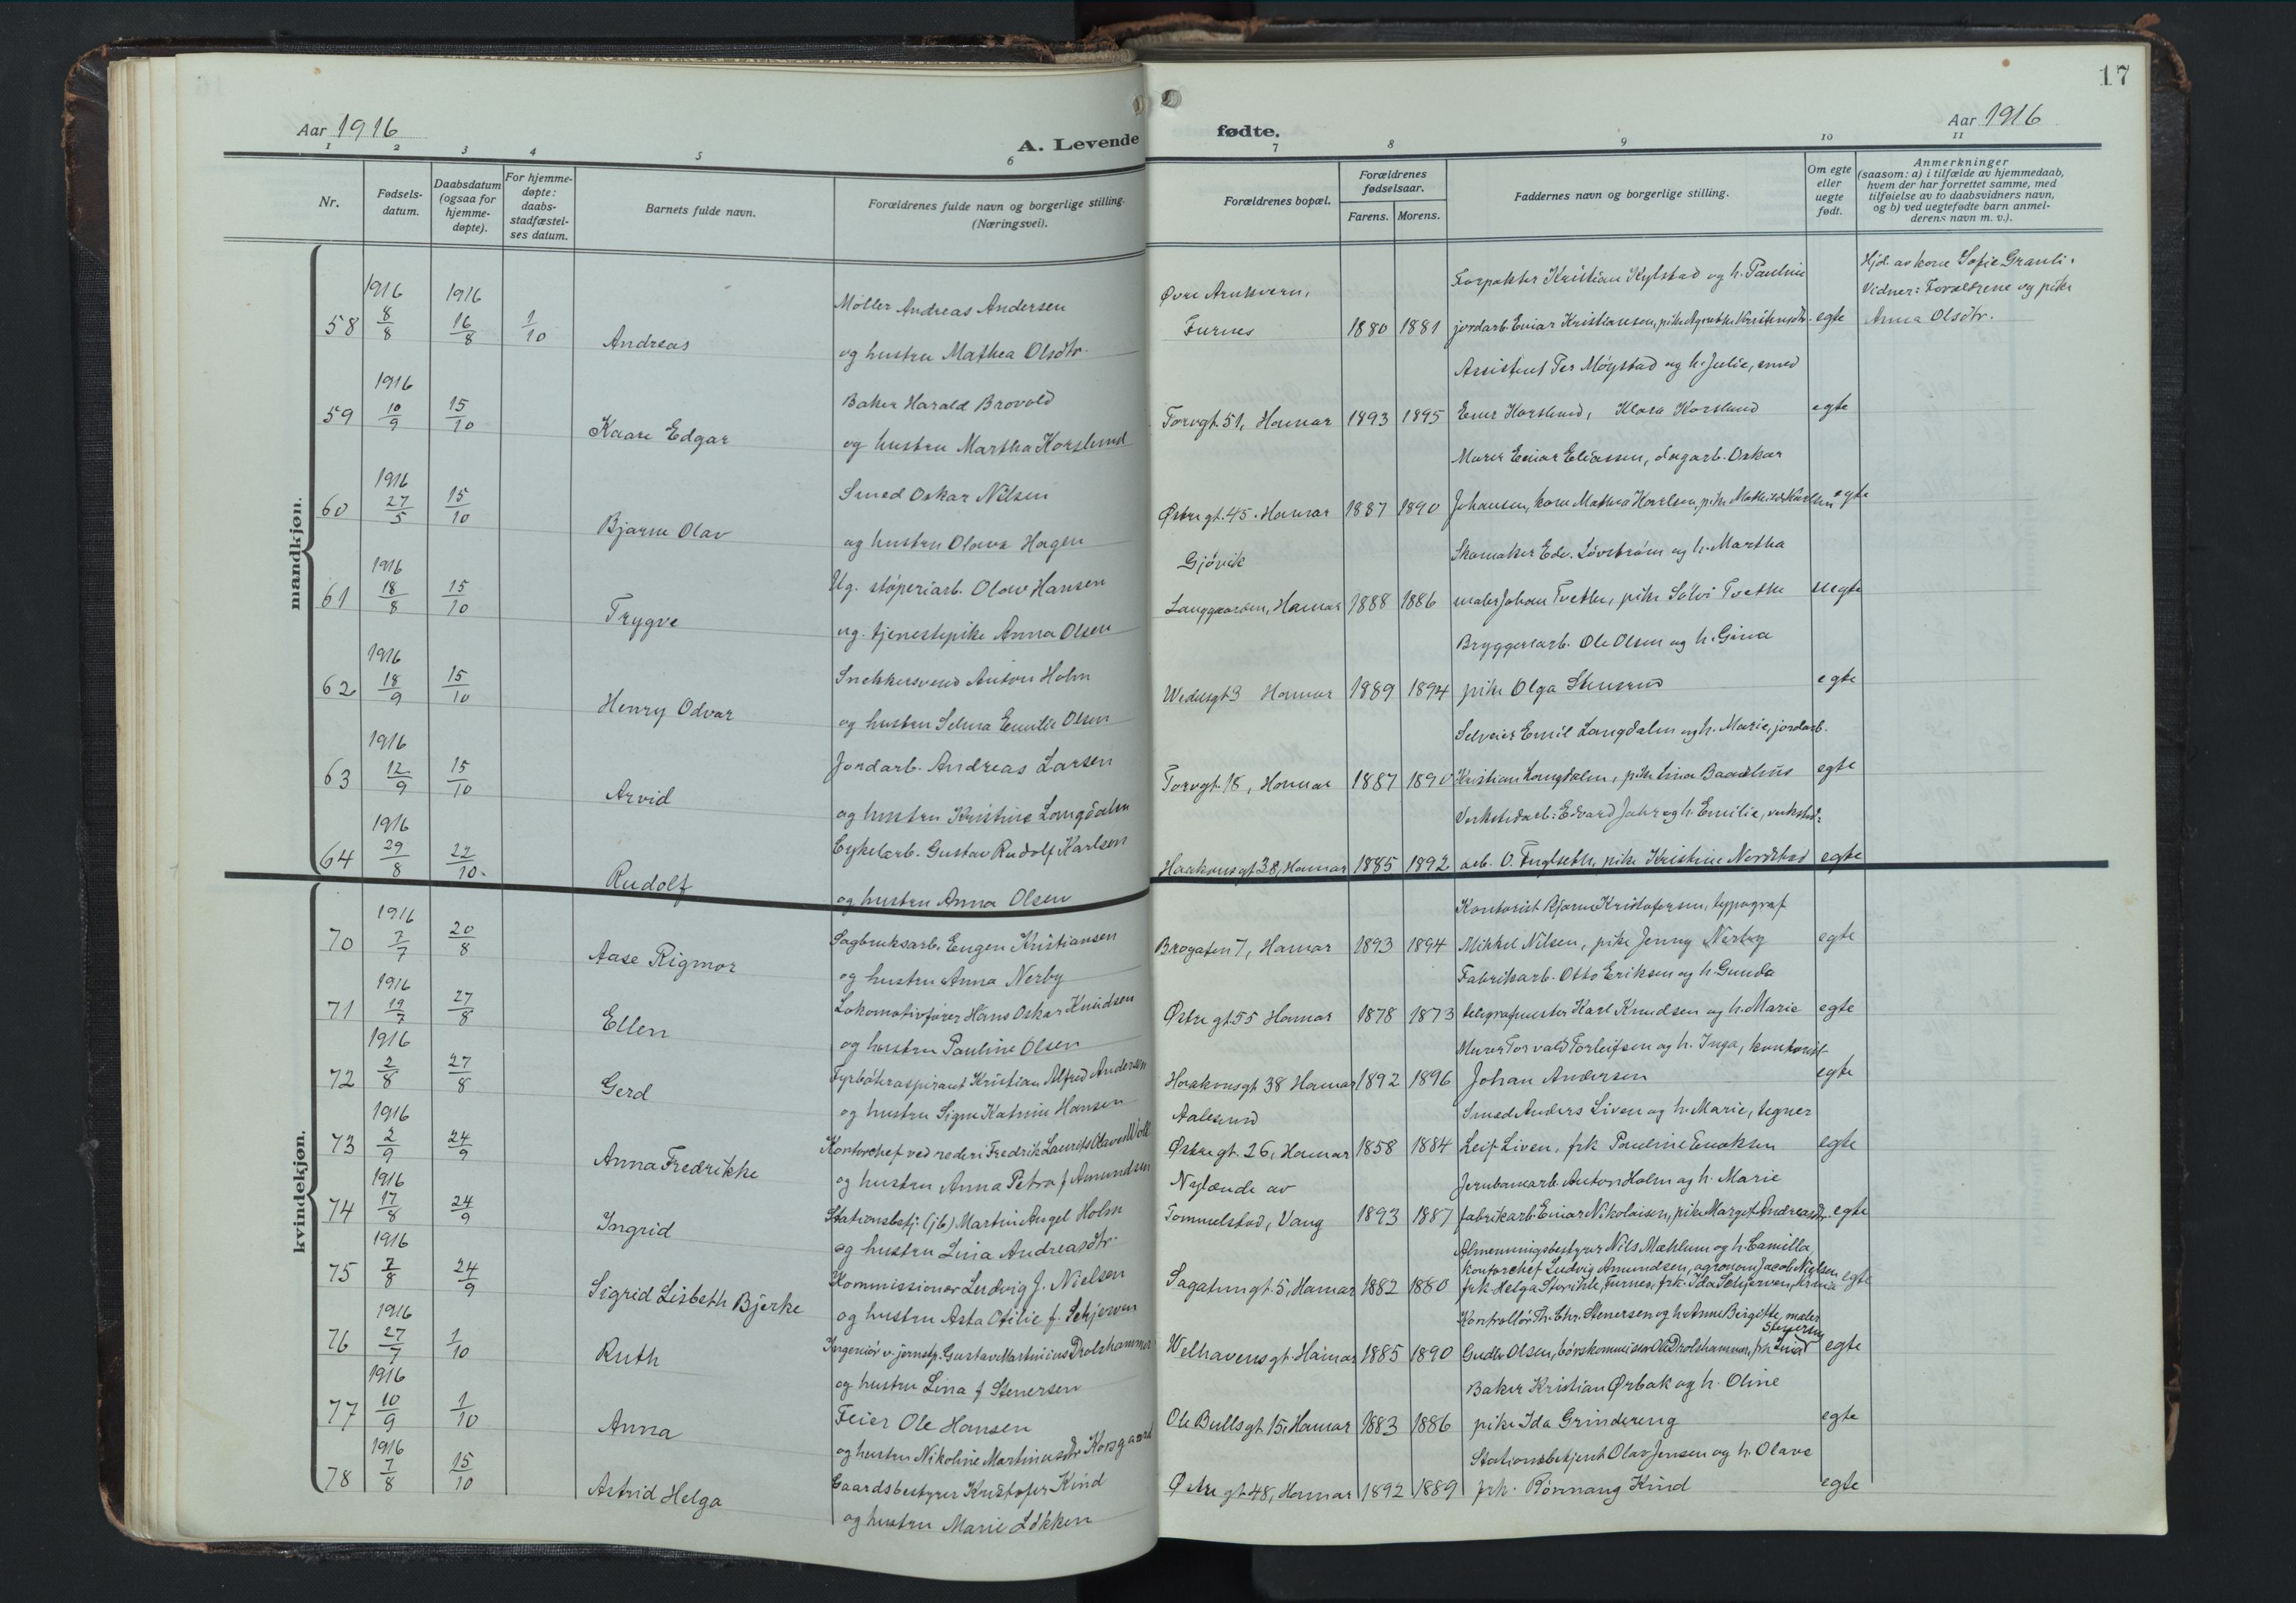 17
Aar 1916
A. Levende fødte.
Aar 1916
1 2 3 4 5 6 7 8 9 10 11
Nr.
Fødsels-
datum.
Daabsdatum
(ogsaa for
hjemme-
døpte).
For hjemme-
døpte:
daabs-
stadfæstel-
ses datum.
Barnets fulde navn.
Forældrenes fulde navn og borgerlige stilling.
(Næringsvei).
Forældrenes bopæl.
Forældrenes
fødselsaar.
Farens. Morens.
Faddernes navn og borgerlige stilling.
Om egte
eller
uegte
født.
Anmerkninger
(saasom: a) i tilfælde av hjemmedaab,
hvem der har forrettet samme, med
tilføielse av to daabsvidners navn,
og b) ved uegtefødte barn anmel-
derens navn m. v.).
mandkjøn.
58 1916 8/8 1916 16/8 1/10 Andreas
Møller Andreas Andersen
og hustru Mathea Olsdtr.
Øvre Arnkvern,
Furnes
1880 1881
Forpakter Kristian Kylstad og h. Pauline
jordarb. Einar Kristiansen, pike Agnethe Kristiansdtr. egte
Hjd. av kone Sofie Granli.
Vidner: Forældrene og pike
Anna Olsdtr.
59 1916 10/9 15/10 Kaare Edgar
Baker Harald Brovold
og hustru Martha Korslund
Torvgt. 51, Hamar 1893 1895
Assistent Per Møystad og h. Julie, smed
Einar Korslund, Klara Korslund egte
60 1916 27/5 15/10 Bjarne Olav
Smed Oskar Nilsen
og hustru Olava Hagen
Østre gt. 45. Hamar 1887 1890
Murer Einar Eliassen, dagarb. Oskar
Johansen, kone Mathea Karlsen, pike Mathilde Karlsen egte
61 1916 18/8 15/10 Trygve
Ug. støperiarb. Olav Hansen
ug. tjenestepike Anna Olsen
Gjøvik
Langgaarden, Hamar 1888 1886
Skomaker Edv. Løvstrøm og h. Martha
maler Johan Tvethe, pike Solvi Tvethe uegte
62 1916 18/9 15/10 Henry Odvar
Snekkersvend Anton Holm
og hustru Selma Emilie Olsen
Wedelsgt 3 Hamar 1889 1894
Bryggeriarb. Ole Olsen og h. Gina
pike Olga Stensrud egte
63 1916 12/9 15/10 Arvid
Jordarb. Andreas Larsen
og hustru Kristine Langdalen
Torvgt. 18, Hamar 1887 1890
Selveier Emil Langdalen og h. Marie, jordarb.
Kristian Langdalen, pike Lina Baadshus egte
64 1916 29/8 22/10. Rudolf
Cykelarb. Gustav Rudolf Karlsen
og hustru Anna Olsen
Haakonsgt 38, Hamar 1885 1892
Verkstedarb. Edvard Jahr og h. Emilie, verksted-
arb. O. Fuglseth, pike Kristine Nordstad egte
kvindekjøn.
70 1916 7/7 20/8 Aase Rigmor
Sagbruksarb. Eugen Kristiansen
og hustru Anna Nerby
Brogaten 7, Hamar 1893 1894
Kontorist Bjarne Kristofersen, typograf
Mikkel Nilsen, pike Jenny Nerby egte
71 1916 19/7 27/8 Ellen
Lokomotivfører Hans Oskar Knudsen
og hustru Pauline Olsen
Østre gt 55 Hamar 1878 1873
Fabrikarb. Otto Eriksen og h. Gunda
telegrafmester Karl Knudsen og h. Marie egte
72 1916 2/8 27/8 Gerd
Fyrbøteraspirant Kristian Alfred Andersen
og hustru Signe Katrine Hansen
Haakonsgt 38 Hamar 1892 1896
Murer Torvald Torleifsen og h. Inga, kontorist
Johan Andersen egte
73 1916 2/9 24/9 Anna Fredrikke
Kontorchef ved rederi Fredrik Laurits Olaves
og hustru Anna Petra f Amundsen
Aalesund
Østre gt. 26, Hamar 1858 1884
Smed Anders Liven og h. Marie, tegner
Leif Liven, frk Pauline Enoksen egte
74 1916 17/8 24/9 Ingrid
Stationsbetj. (jb) Martin Angel Holm
og hustru Lina Andreasdtr.
Nylænde av
Tommelstad, Vang 1893 1887
Jernbanearb. Anton Holm og h. Marie
fabrikarb. Einar Nikolaisen, pike Margit Andreasdtr. egte
75 1916 7/8 24/9 Sigrid Lisbeth Bjerke
Kommissionær Ludvig J. Nielsen
og hustru Asta Otilie f. Schjerven
Sagatungt. 5, Hamar 1882 1880
Almenningsbestyrer Nils Mæhlum og h. Camilla,
kontorchef Ludvig Amundsen, agronom Jacob Nielsen
frk. Helga Storihle, Furnes, frk. Ida Schjerven, Krania egte
76 1916 27/7 1/10 Ruth
Ingeniør v. jernstp. Gustav Martinius Drolshammer
og hustru Lina f Stenersen
Welhavensgt. Hamar 1885 1890
Kontrollør Th. Chr. Stenersen og h. Anne Birgitte, maler
Gudbr Olsen, børskommissær Ole Drolshammer, frk Lina Stenersen egte
77 1916 10/9 1/10 Anna
Feier Ole Hansen
og hustru Nikoline Martinusdtr Korsgaard
Ole Bulls gt 15, Hamar 1883 1886
Baker Kristian Ørbak og h. Oline
pike Ida Grindereng egte
78 1916 7/8 15/10 Astrid Helga
Gaardsbestyrer Kristofer Kind
og hustru Marie Løkken
Østre gt 48, Hamar 1892 1889
Stationsbetjent Olav Jensen og h. Olava
frk. Rønnaug Kind egte